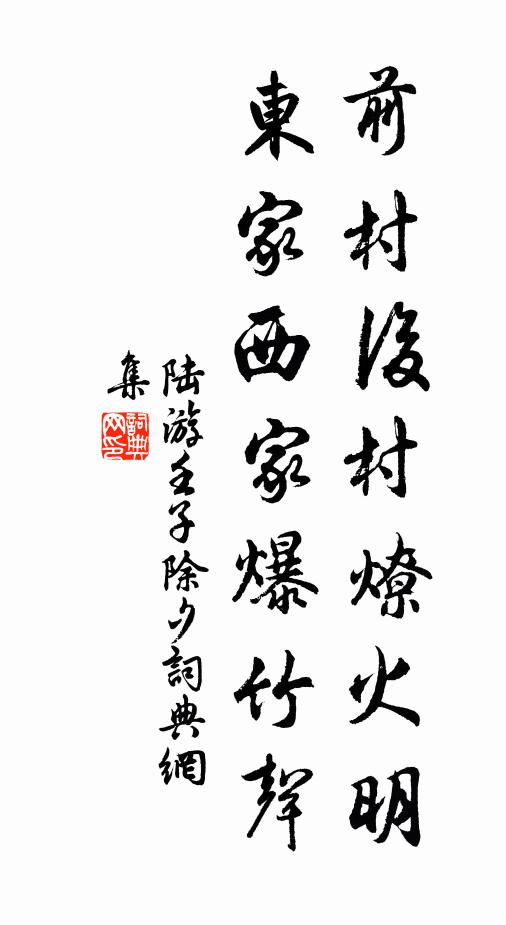 前村後村燎火明
東家西家爆竹聲
陆游壬子除夕詞典網
集
詞典网印